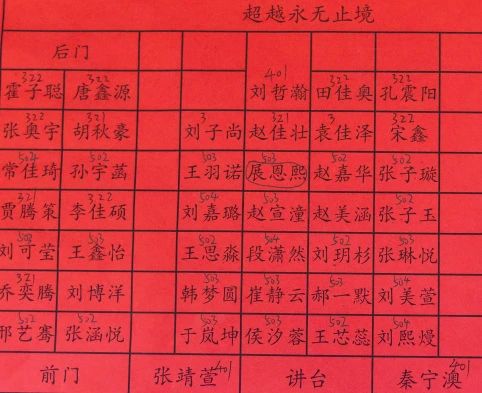 超越永无止境
后门
401
322 322 322 322
霍子聪 唐鑫源 刘哲瀚 田佳奥 孔震阳
322 321 3 321 321 322
张奥宇 胡秋豪 刘子尚 赵佳壮 袁佳泽 宋鑫
504 502 503 503 502 503
常佳琦 孙宇菡 王羽诺 展恩熙 赵嘉华 张子璇
321 322 504 503
贾腾策 李佳硕 刘嘉璐 赵宣潼 赵美涵 张子玉
503 503 502 504 502 503
刘可莹 王鑫怡 王思淼 段潇然 刘玥杉 张琳悦
321 503 503 503 504
乔奕腾 刘博洋 韩梦圆 崔静云 郝一默 刘美萱
502 502 503 502 504
邢艺骞 张涵悦 于岚坤 侯汐蓉 王芯蕊 刘熙熳
前门 张靖萱401 讲台 秦宁澳401